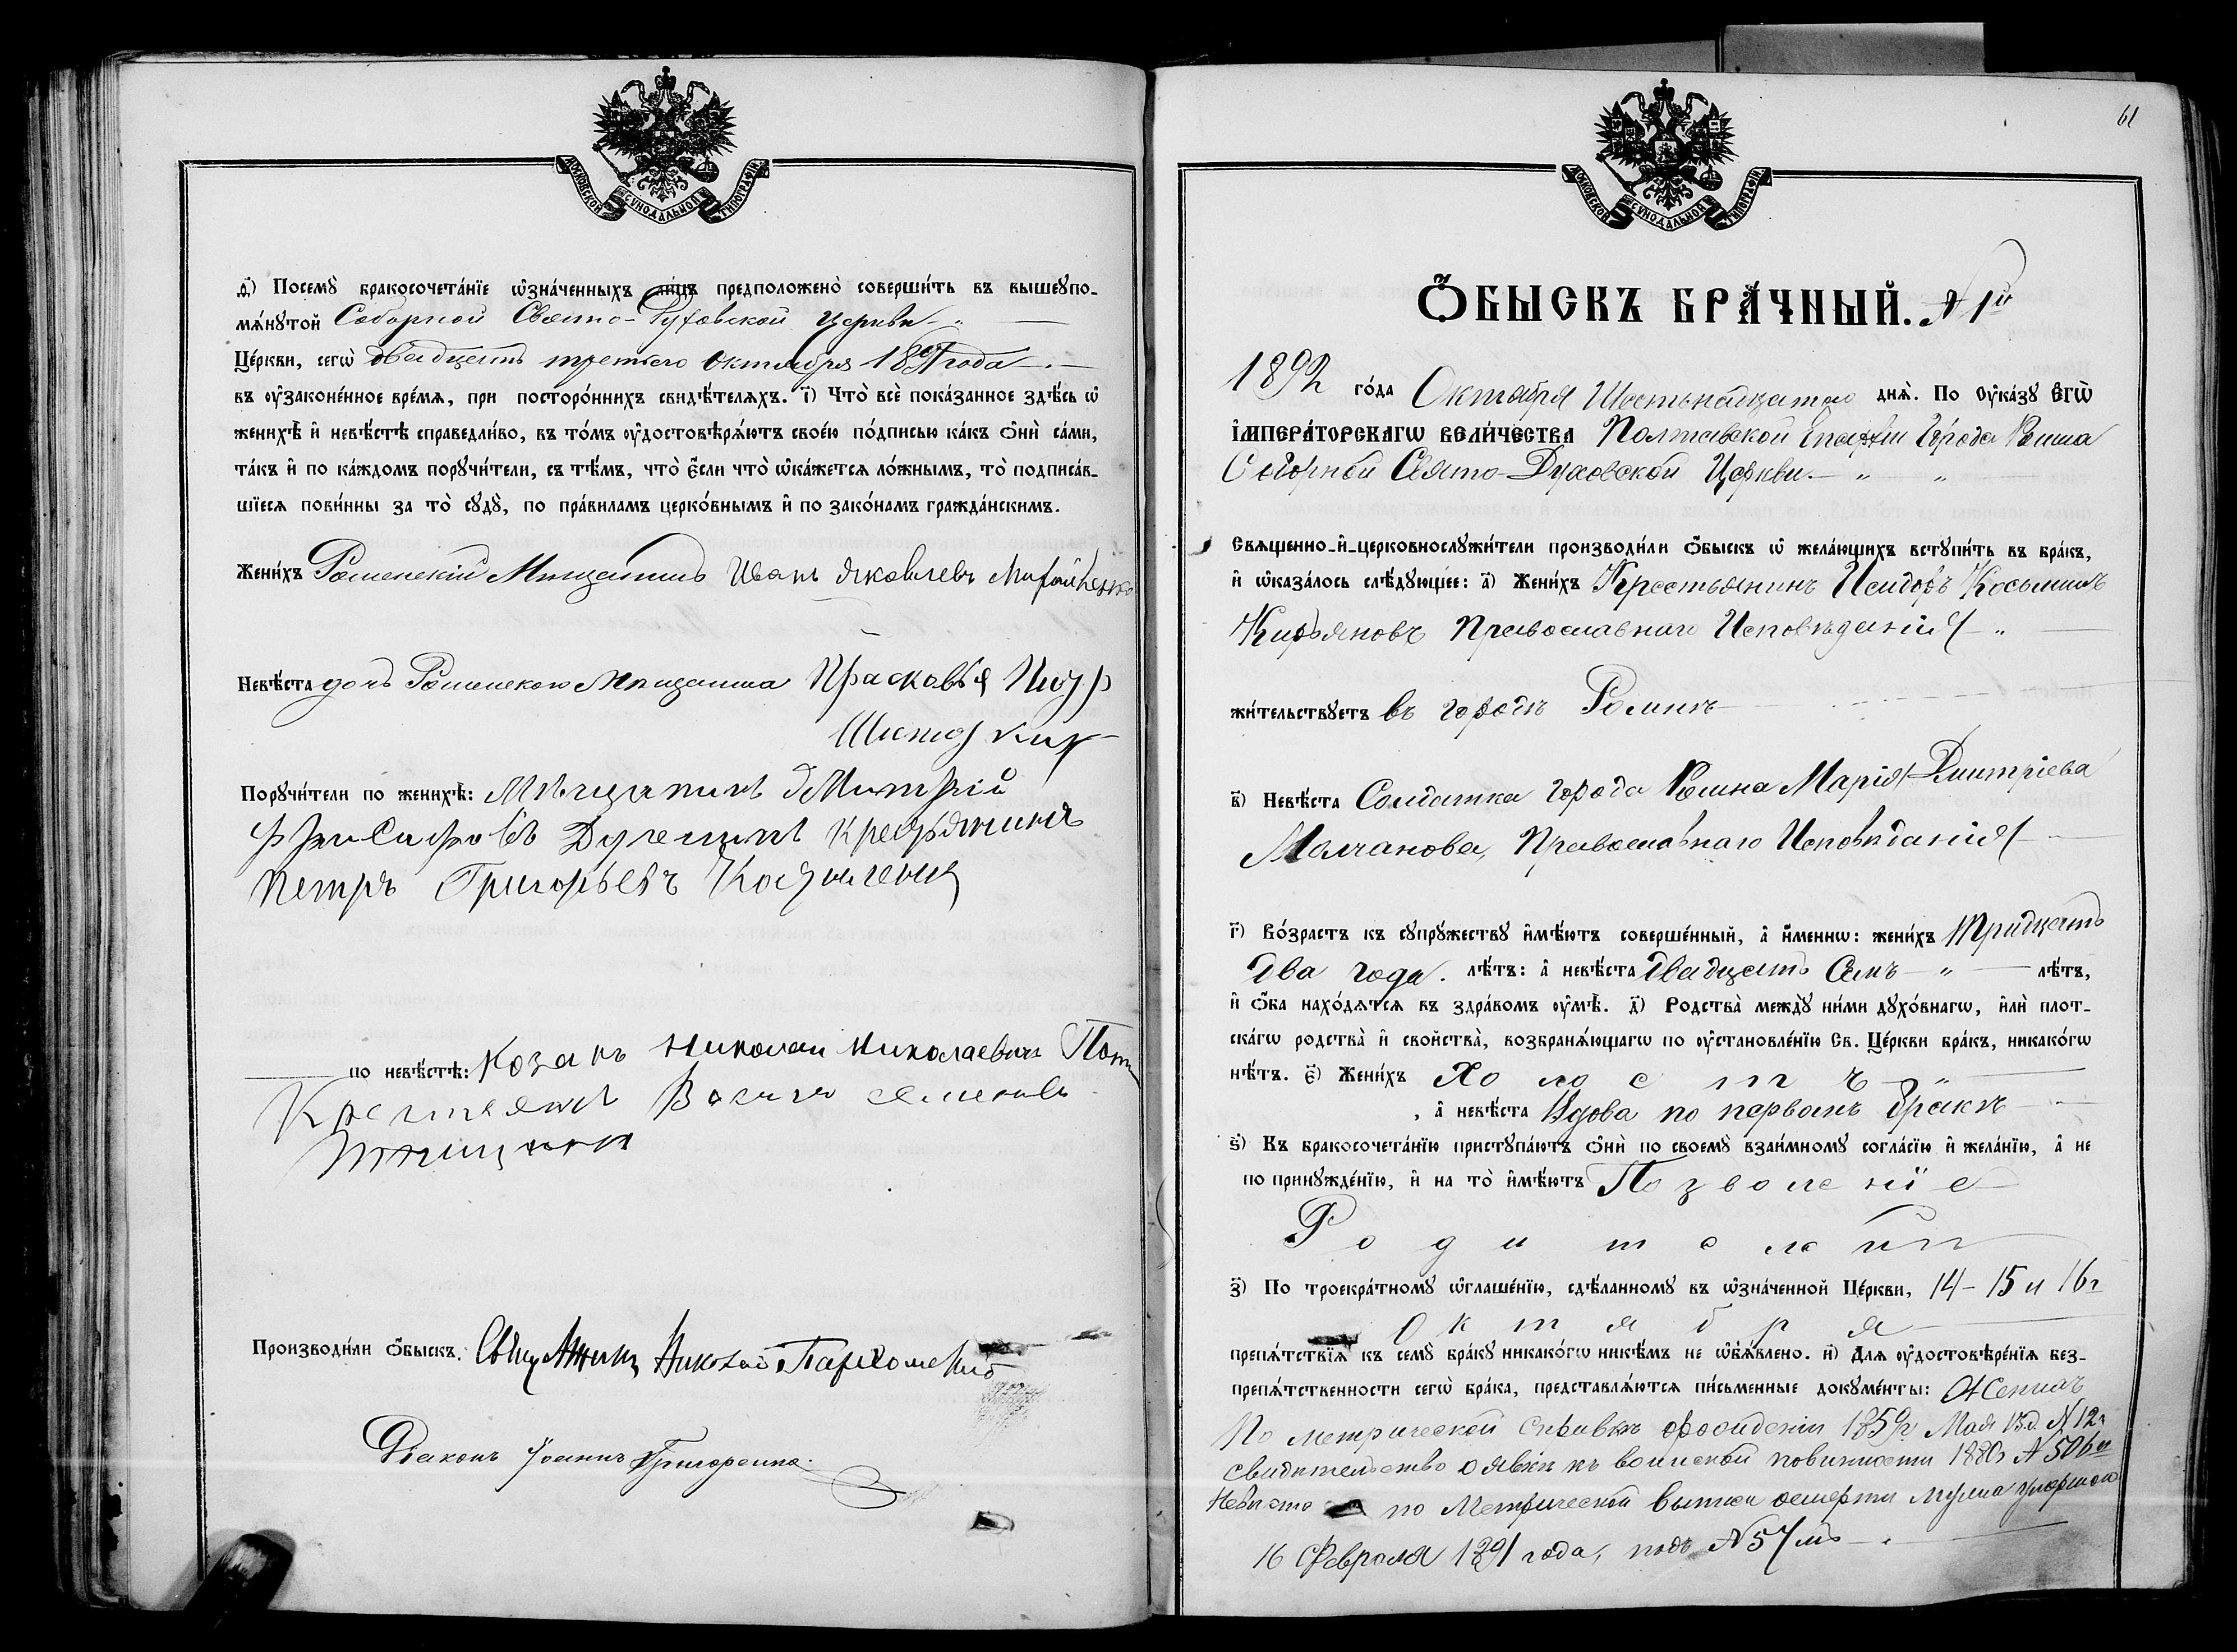 МОСКОВСКОЙ СУНОДАЛЬНОЙ ТИПОГРАФІИ
ѳ҃) Посемꙋ̀ бракосочета́нїе ѡ҆зна́ченныхъ ли́цъ предположено̀ соверши́ть въ вышеꙋпо-
мѧ́нꙋтой Соборной Свято-Духовской церкви
Це́ркви, сегѡ̀ двадцать третьяго Октября 1891 года
въ ᲂу҆законе́нное вре́мѧ, при посторо́ннихъ свидѣ́телѧхъ. і҃) Что̀ всѐ пока́занное здѣ́сь ѡ҆
женихѣ̀ и҆ невѣ́стѣ справедли́во, въ то́мъ ᲂу҆достовѣрѧ́ютъ свое́ю по́дписью ка́къ ѻ҆нѝ са́ми,
та́къ и҆ по ка́ждомъ порꙋчи́тели, съ тѣ́мъ, что̀ є҆́сли что̀ ѡ҆ка́жетсѧ ло́жнымъ, то̀ подписа́в-
шїесѧ пови́нны за то̀ сꙋдꙋ̀, по пра́виламъ церко́внымъ и҆ по зако́намъ гражда́нскимъ.
Жени́хъ Роменскій Мѣщанинъ Иванъ Яковлевъ
Невѣ́ста дочь Роменского Мѣщанина Прасковья
Порꙋчи́тели по женихѣ̀: Мѣщанинъ Дмитрій
Крестьянинъ
Петръ Григорьевъ
по невѣ́стѣ: Козакъ Николай Николаевичъ
Крестьянинъ
Производи́ли ѻ҆́быскъ. Николай
Діаконъ Іоаннъ
61
МОСКОВСКОЙ СУНОДАЛЬНОЙ ТИПОГРАФІИ
Ѻ҆́БЫСКЪ БРА́ЧНЫЙ. № 1й
1892 го́да Октября Шестьнадцатаго днѧ̀. По Оу҆ка́зꙋ Е҆ГѠ̀
І҆МПЕРА́ТОРСКАГѠ ВЕЛИ́ЧЕСТВА Полтавской Епархіи Города Ромна
Соборной Свято-Духовской Церкви
Свѧщенно-и҆-церковнослꙋжи́тели производи́ли ѻ҆́быскъ ѡ҆ жела́ющихъ встꙋпи́ть въ бра́къ,
и҆ ѡ҆каза́лось слѣ́дꙋющее: а҃) Жени́хъ Крестьянинъ Исидоръ Косьминъ
Кирьяновъ Православнаго Исповѣданія
жи́тельствꙋетъ въ городѣ Ромнѣ
в҃) Невѣ́ста Солдатка города Ромна Марія Дмитріева
Молчанова, Православнаго Исповѣданія
г҃) Во́зрастъ къ сꙋпрꙋ́жествꙋ и҆мѣ́ютъ соверше́нный, а҆ и҆́меннѡ: жени́хъ Тридцать
два года. лѣ́тъ: а҆ невѣ́ста двадцать семь лѣ́тъ,
и҆ ѻ҆́ба нахо́дѧтсѧ въ здра́вомъ ᲂу҆мѣ̀. д҃) Родства̀ междꙋ̀ ни́ми дꙋхо́внагѡ, и҆лѝ плот-
ска́гѡ родства̀ и҆ свойства̀, возбранѧ́ющагѡ по ᲂу҆становле́нїю Св. Це́ркви бра́къ, никако́гѡ
нѣ́тъ. є҃) Жени́хъ Холостъ
, а҆ невѣ́ста Вдова по первомъ бракѣ
ѕ҃) Къ бракосочета́нїю пристꙋпа́ютъ ѻ҆нѝ по своемꙋ̀ взаи́мномꙋ согла́сїю и҆ жела́нїю, а҆ не
по принꙋжде́нїю, и҆ на то̀ и҆мѣ́ютъ Позволеніе
Родителей
з҃) По троекра́тномꙋ ѡ҆глаше́нїю, сдѣ́ланномꙋ въ ѡ҆зна́ченной Це́ркви, 14-15 и 16г
Октября
препѧ́тствїѧ къ семꙋ̀ бра́кꙋ никако́гѡ никѣ́мъ не ѡ҆б̾ѧ́влено. и҃) Длѧ ᲂу҆достовѣре́нїѧ без-
препѧ́тственности сегѡ̀ бра́ка, представлѧ́ютсѧ пи́сьменные докꙋме́нты: Женихъ
По метрической справкѣ о рожденіи 1859г Мая 13д. № 12г
свидѣтельство о явкѣ къ воинской повинности 1880г № 506м
Невѣста по Метрической выписи о смерти мужа умершаго
16 Февраля 1891 года, подъ № 57мъ